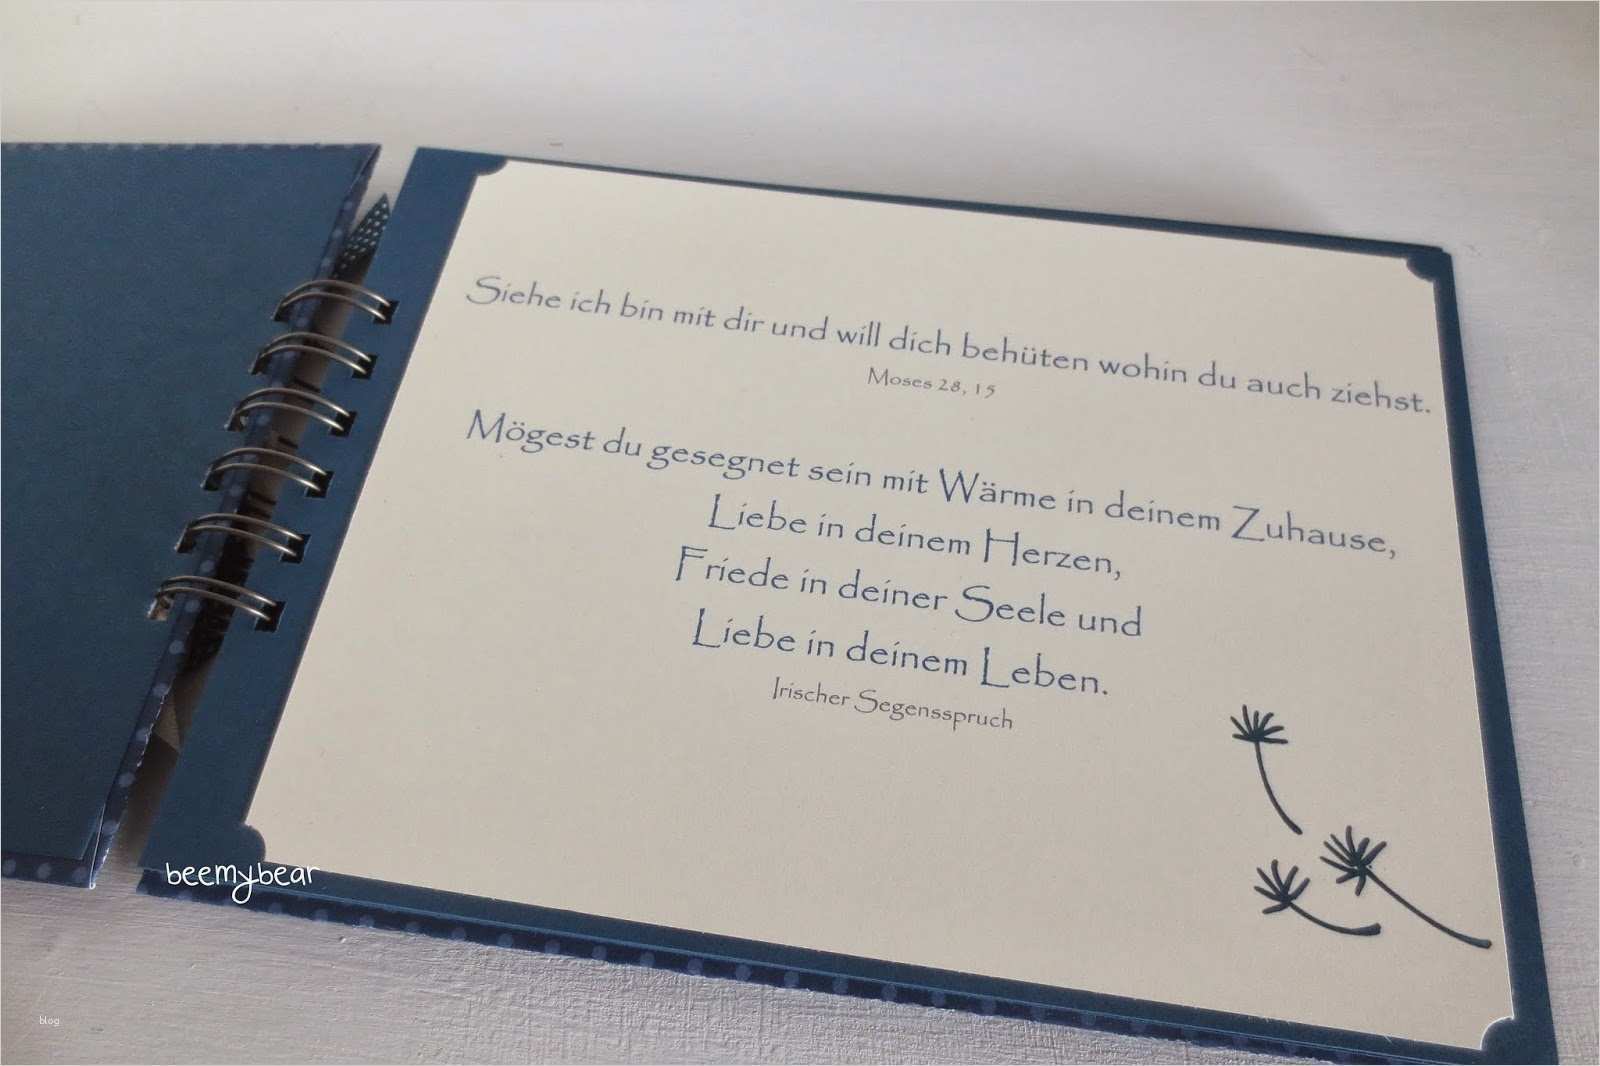 Siehe ich bin mit dir und will dich behüten wohin du auch ziehst.
Moses 28, 15
Mögest du gesegnet sein mit Wärme in deinem Zuhause,
Liebe in deinem Herzen,
Friede in deiner Seele und
Liebe in deinem Leben.
Irischer Segensspruch
beemybear
blog